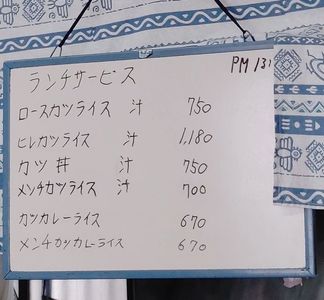 ランチサービス PM 131
ロースカツライス 汁 750
ヒレカツライス 汁 1,180
カツ丼 汁 750
メンチカツライス 汁 700
カツカレーライス 670
メンチカツカレーライス 670